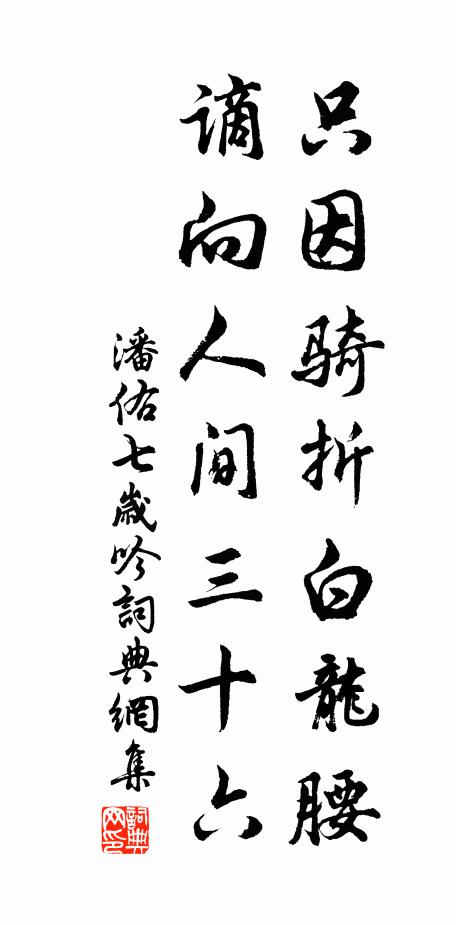 只因骑折白龍腰
谪向人间三十六
潘佑七歲吟詞典網集
詞典
网印